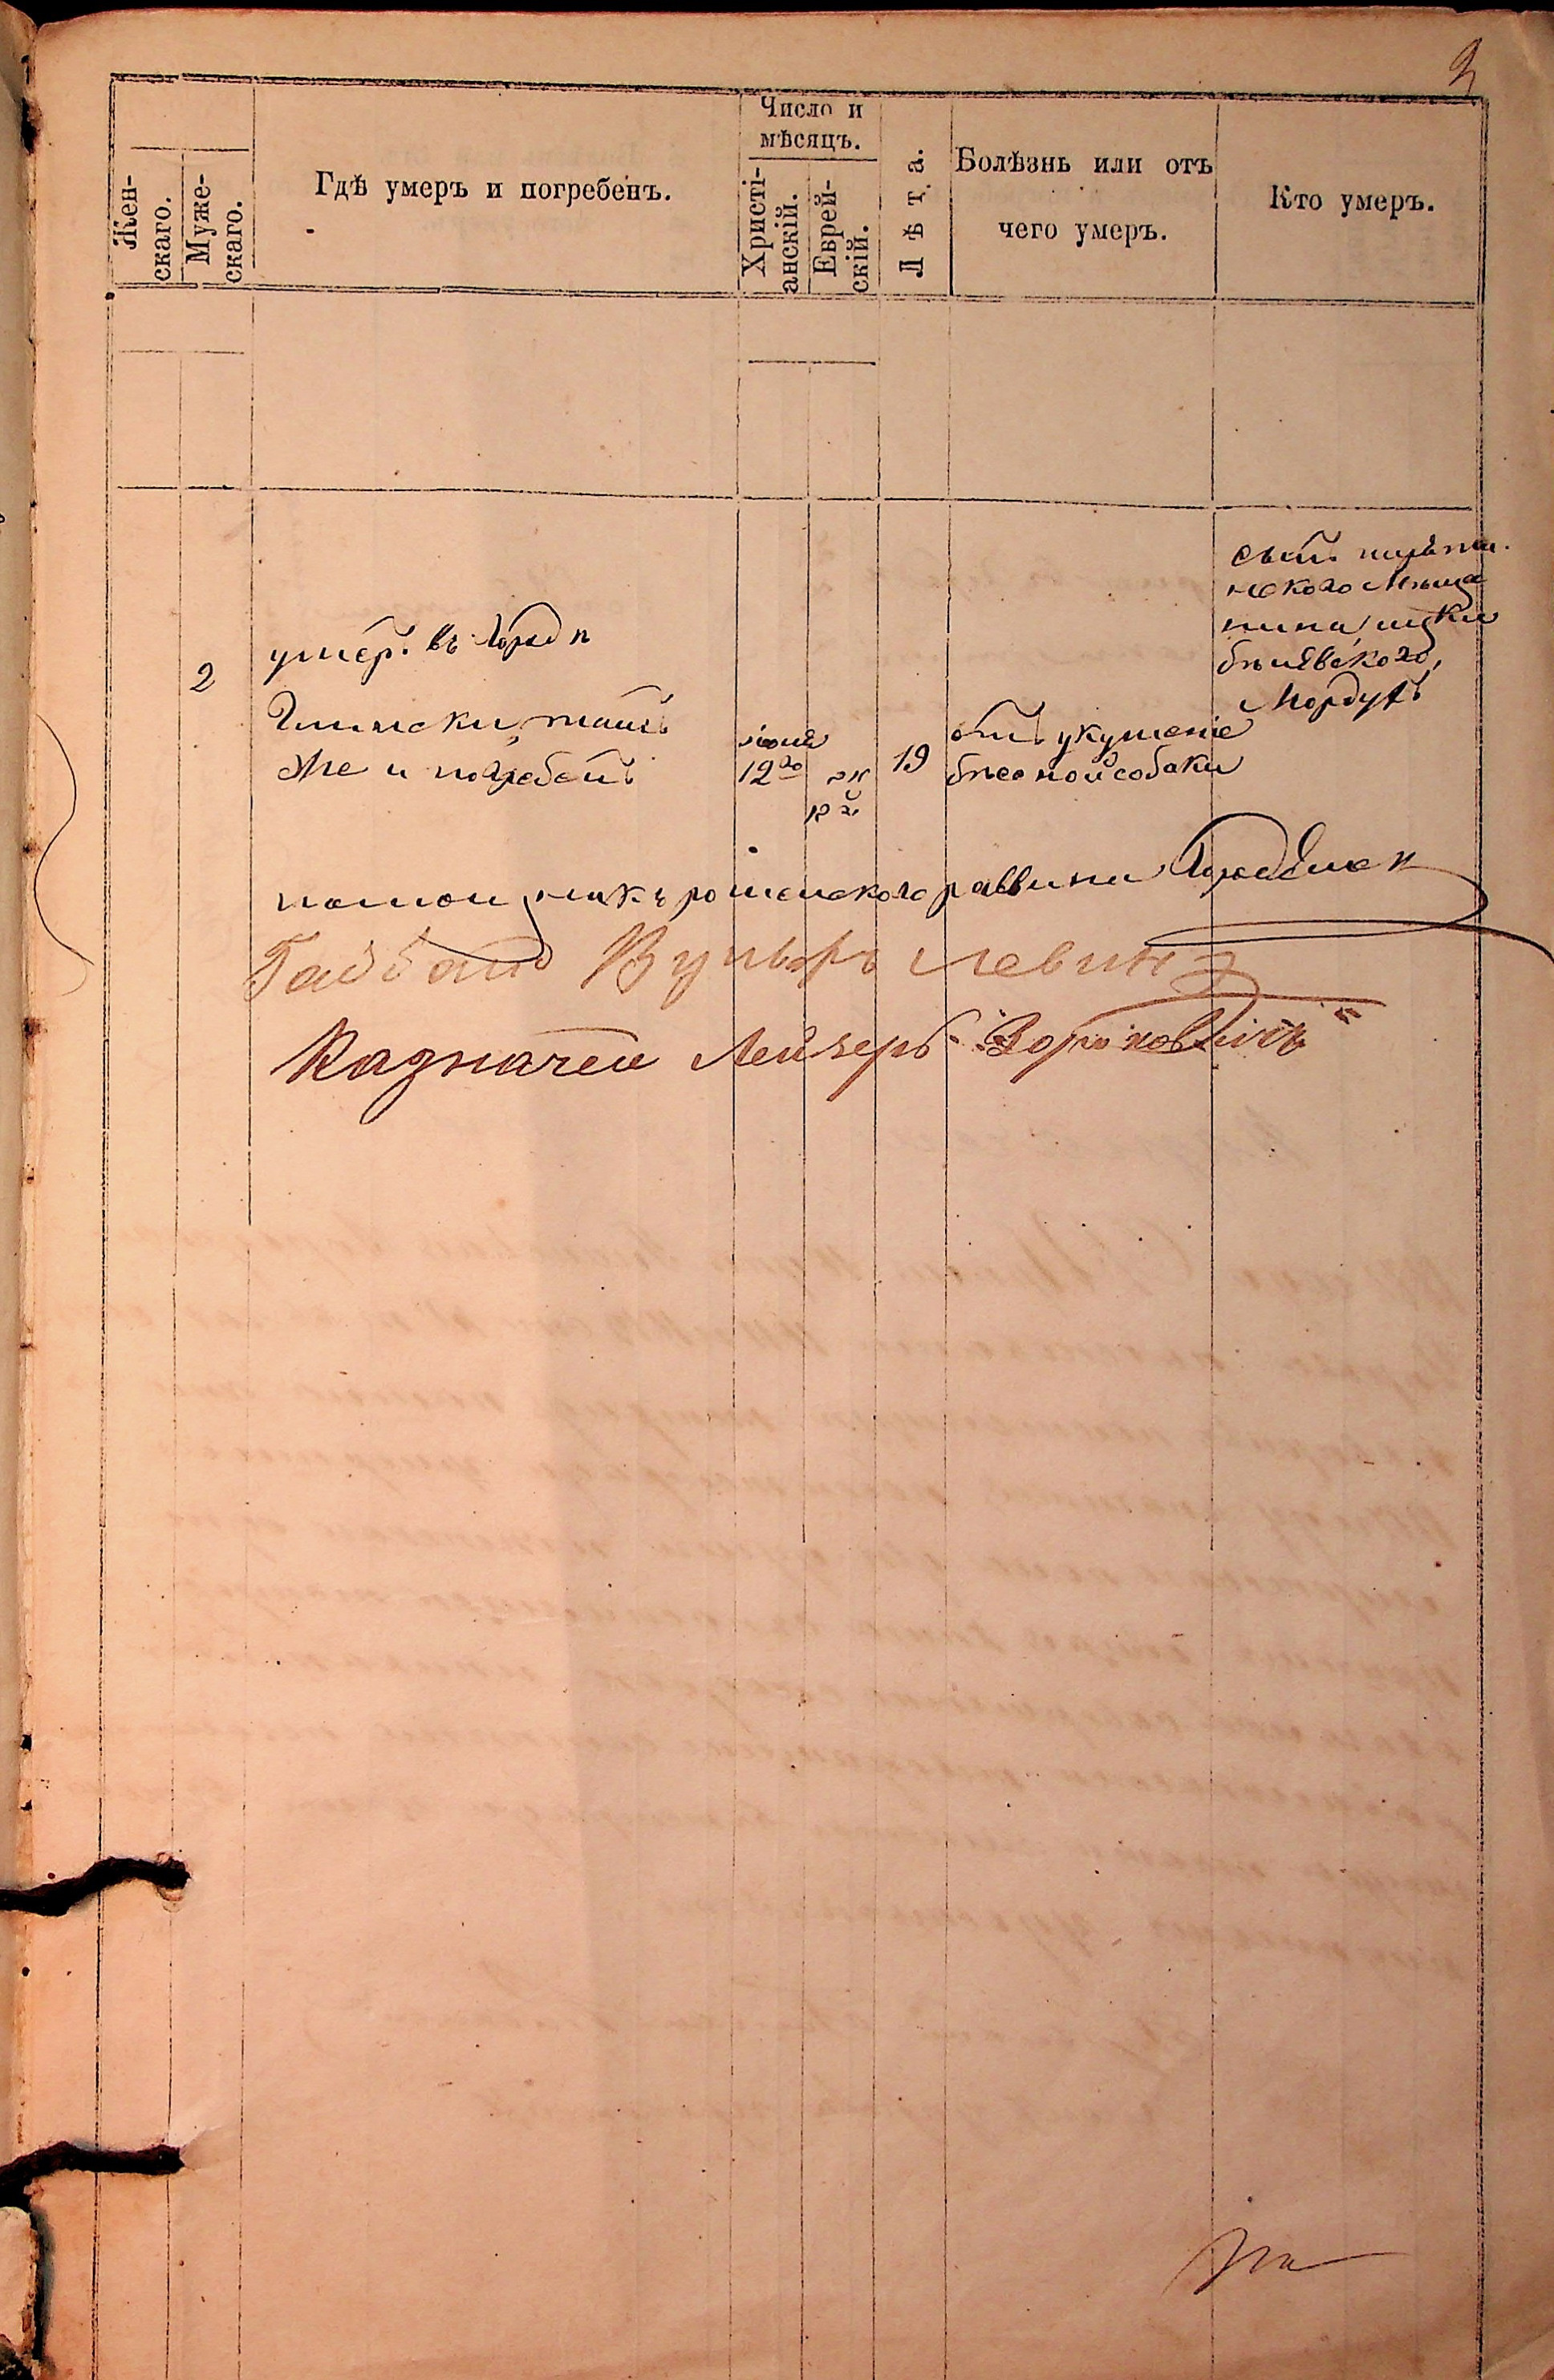 2
Жен-
скаго.
Муже-
скаго.
Гдѣ умеръ и погребенъ.
Число и
мѣсяцъ.
Христі-
анскій.
Еврей-
скій.
Лѣта.
Болѣзнь или отъ
чего умеръ.
Кто умеръ.
2
умеръ. въ Городѣ
Глински, тамъ
же и погребенъ
іюня
12го
19
отъ укушеніе
бѣсной собаки
сынъ
нскаго Мѣща
нина, ицки
Мордухъ
помощникъ роменского раввина
Габбай Вульфъ Левинъ
Казначей Лейзеръ